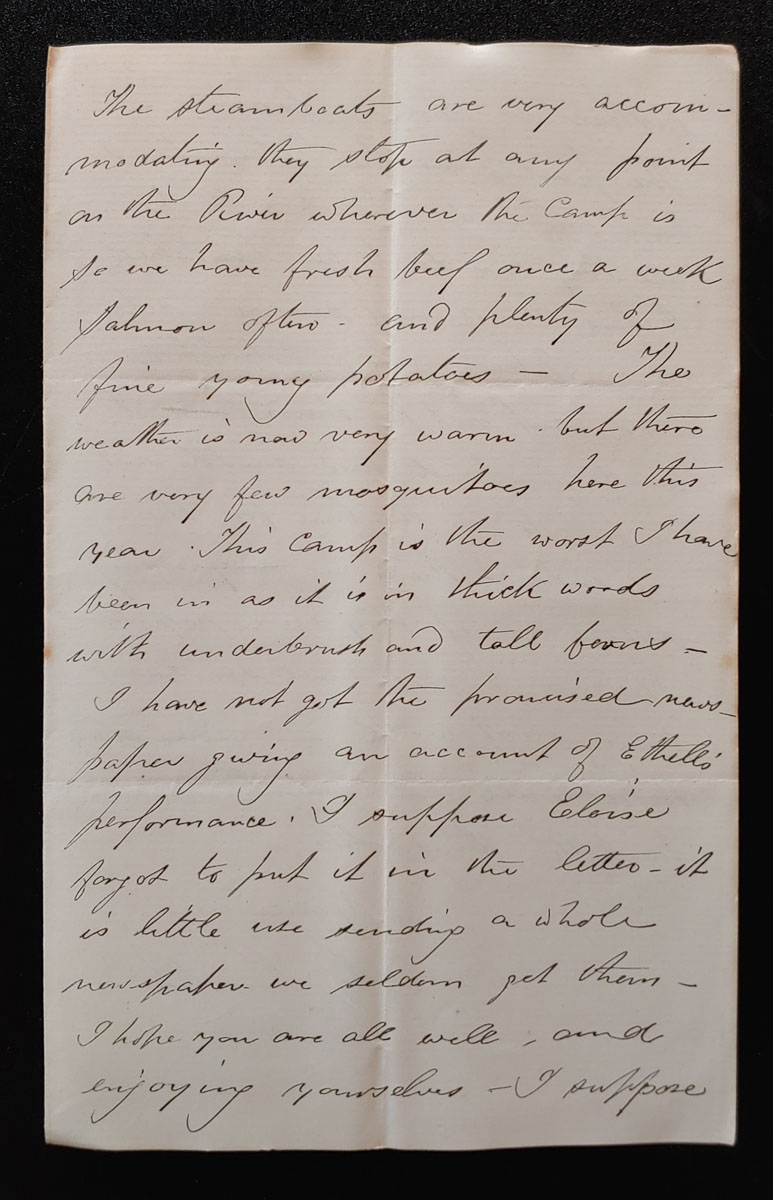 The steamboats are very accom-
modating. they stop at any point
on the River wherever the Camp is
so we have fresh beef once a week
Salmon often - and plenty of
fine young potatoes — The
weather is now very warm . but there
are very few mosquitoes here this
year . This Camp is the worst I have
been in as it is in thick woods
with underbrush and tall ferns -
I have not got the promised news-
paper giving an account of Ethell's
performance . I suppose Eloise
forgot to put it in the letter - it
is little use sending a whole
newspaper we seldom get them -
I hope you are all well , and
enjoying yourselves - I suppose